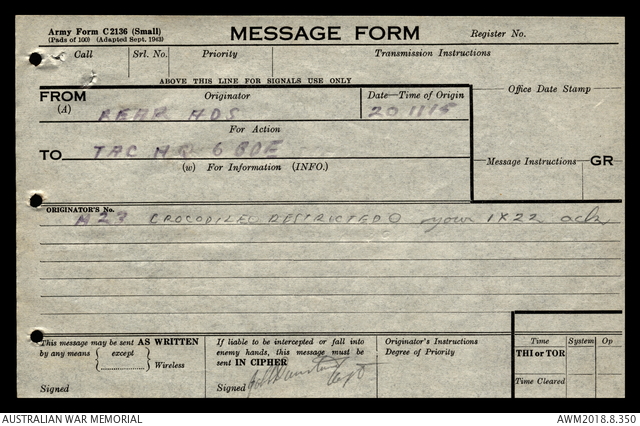 Army Form C2136 (Small)
(Pads of 100) (Adapted Sept. 1943)
MESSAGE FORM
Register No.
Call
Srl. No.
Priority
Transmission Instructions
ABOVE THIS LINE FOR SIGNALS USE ONLY
FROM
(A)
Originator
Date—Time of Origin
Office Date Stamp
REAR HDS
20 1115
For Action
TO
TAC HQ 6 BDE
(W) For Information (INFO.)
Message Instructions
GR
ORIGINATOR'S No.
A23 CROCODILEO RESTRUCTEDO your 1X22 ack
This message may be sent AS WRITTEN
by any means
except
Wireless
Signed
If liable to be intercepted or fall into
enemy hands, this message must be
sent IN CIPHER
Signed
Capt
Originator's Instructions
Degree of Priority
Time
System
Op
THI or TOR
Time Cleared
AUSTRALIAN WAR MEMORIAL
AWM2018.8.350